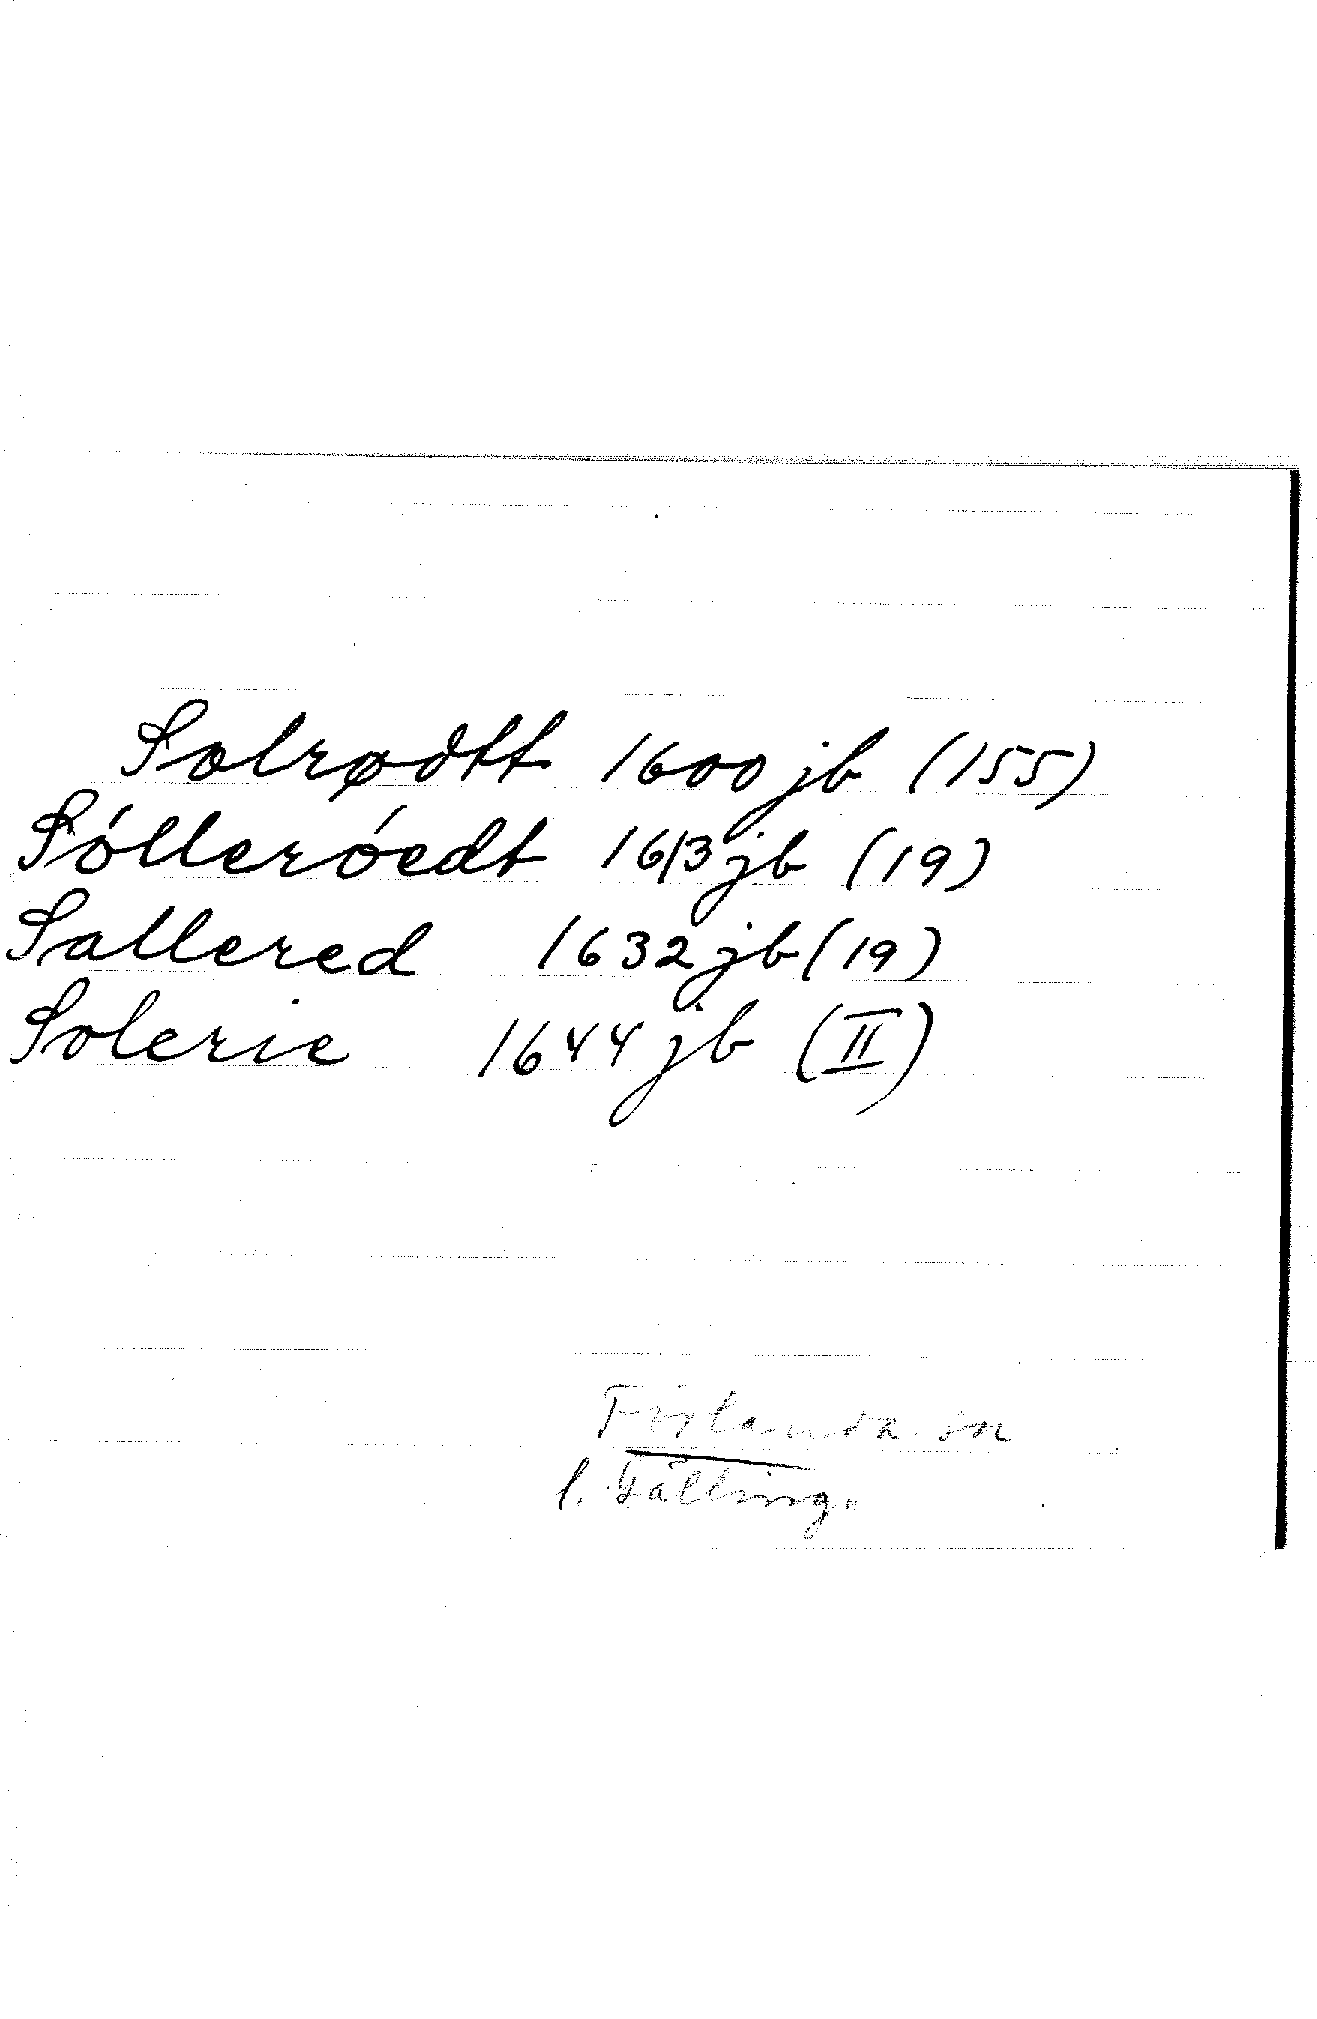 Solrødtt 1600 jb (155)
Sólleróedt 1613 jb (19)
Sallered 1632 jb (19)
Solerie 1644 jb (II)
Förlanda sn
l. Fälling.